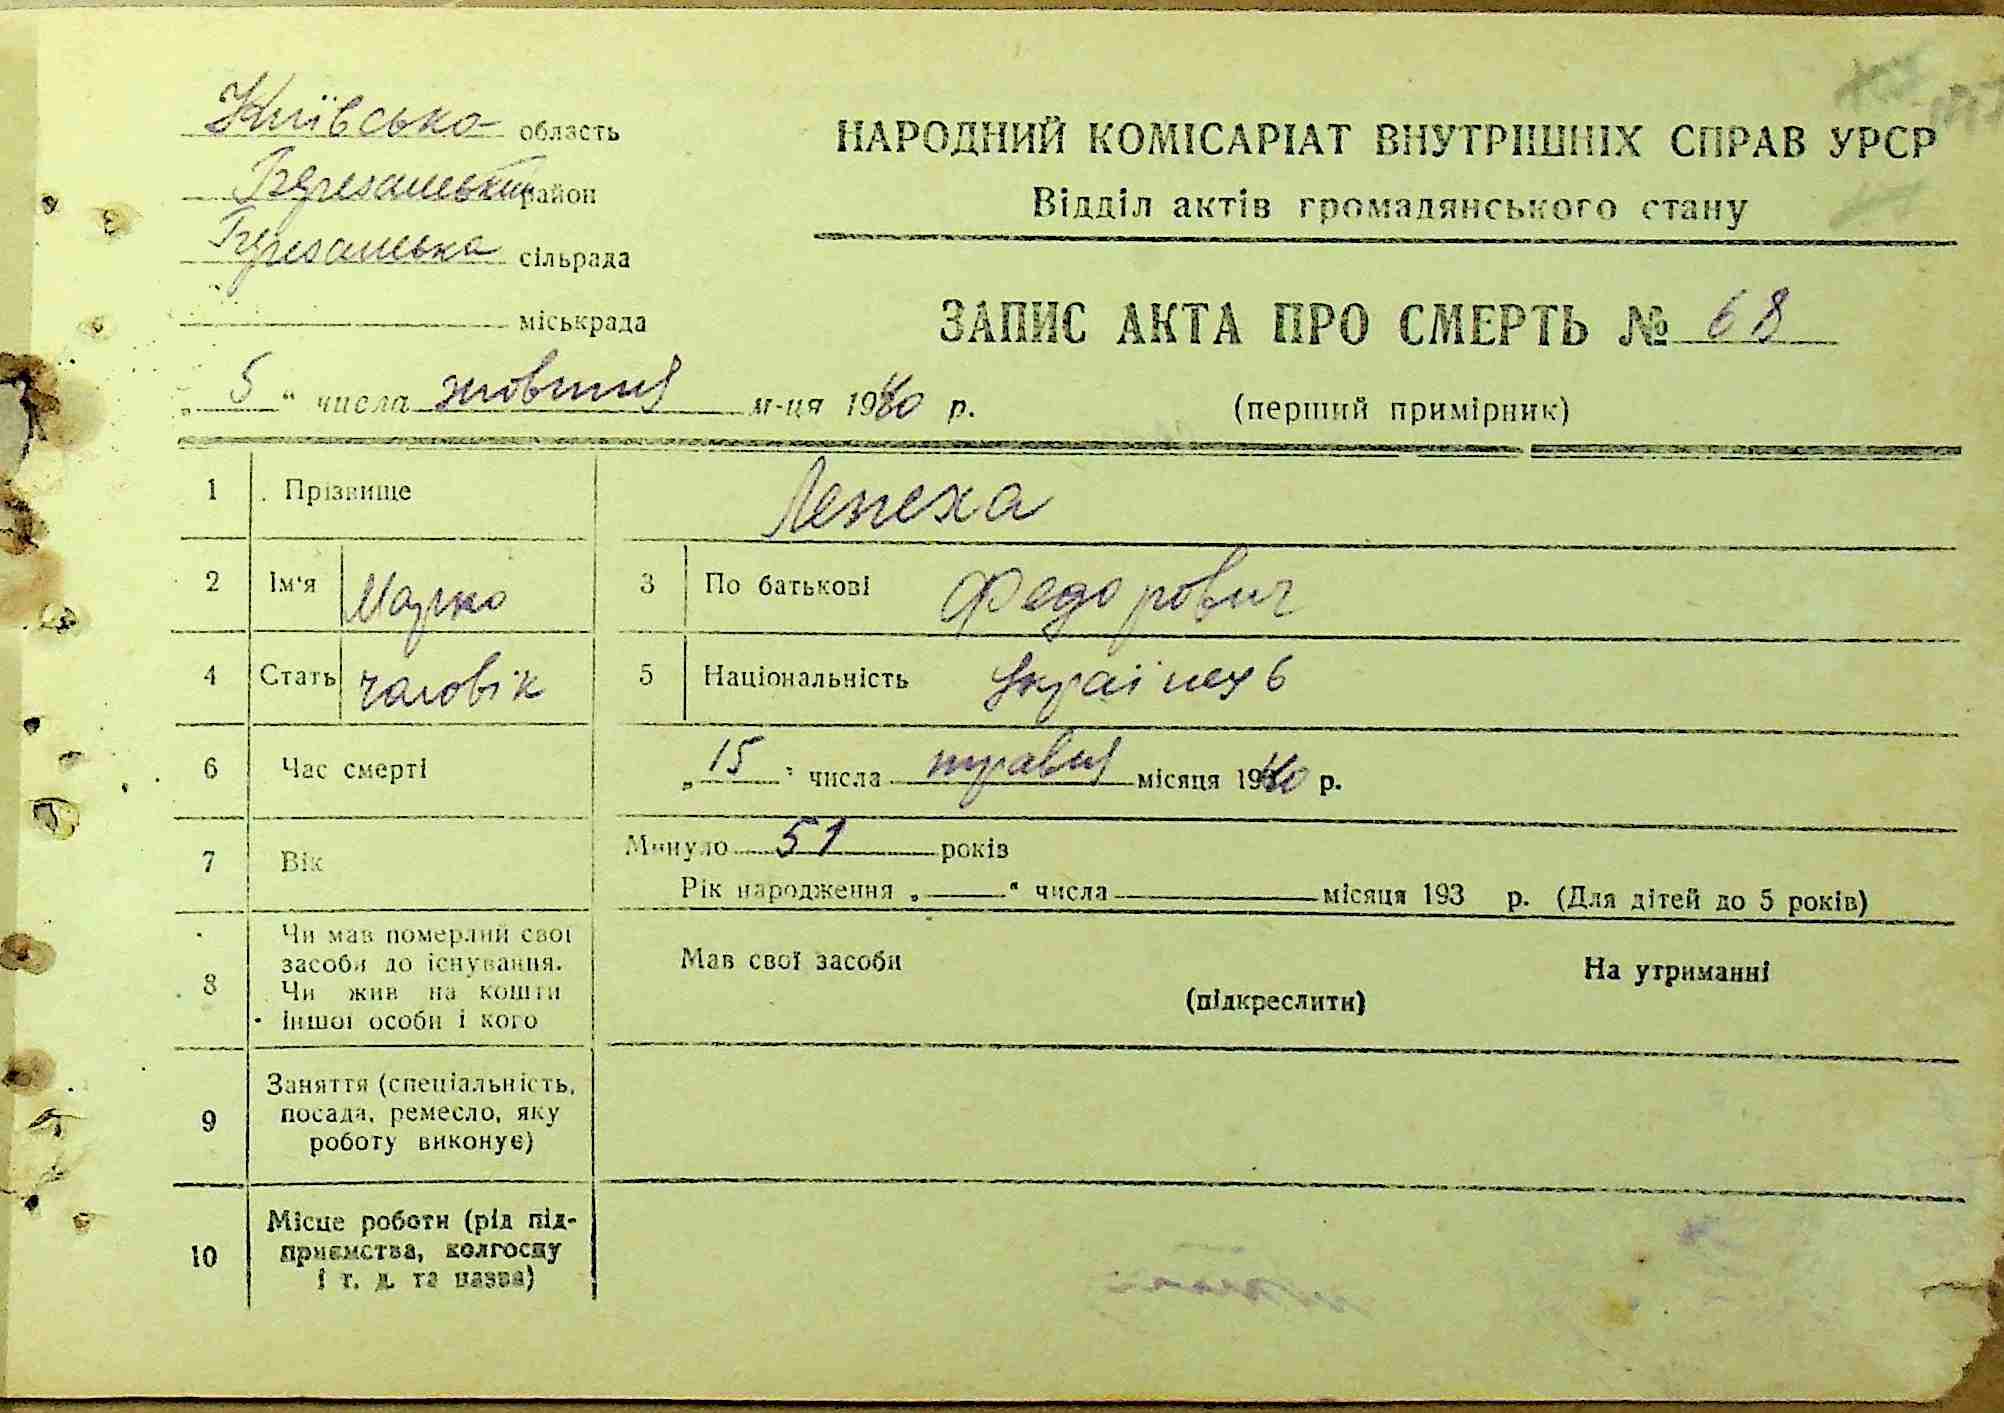 Київська область
Березанський район
Березанська сільрада
міськрада
„ 5 “ числа жовтня м-ця 1940 р.
НАРОДНИЙ КОМІСАРІАТ ВНУТРІШНІХ СПРАВ УРСР
Відділ актів громадянського стану
ЗАПИС АКТА ПРО СМЕРТЬ № 68
(перший примірник)
1 Прізвище Лепеха
2 Ім'я Марко 3 По батькові Федорович
4 Стать чаловік 5 Національність
6 Час смерті „ 15 “ числа травня місяця 1940 р.
7 Вік Минуло 51 років
Рік народження „ “ числа місяця 193 р. (Для дітей до 5 років)
8 Чи мав померлий свої засоби до існування. Чи жив на кошти іншої особи і кого
Мав свої засоби На утриманні
(підкреслити)
9 Заняття (спеціальність, посада, ремесло, яку роботу виконує)
10 Місце роботи (рід підприємства, колгоспу і т. д. та назва)